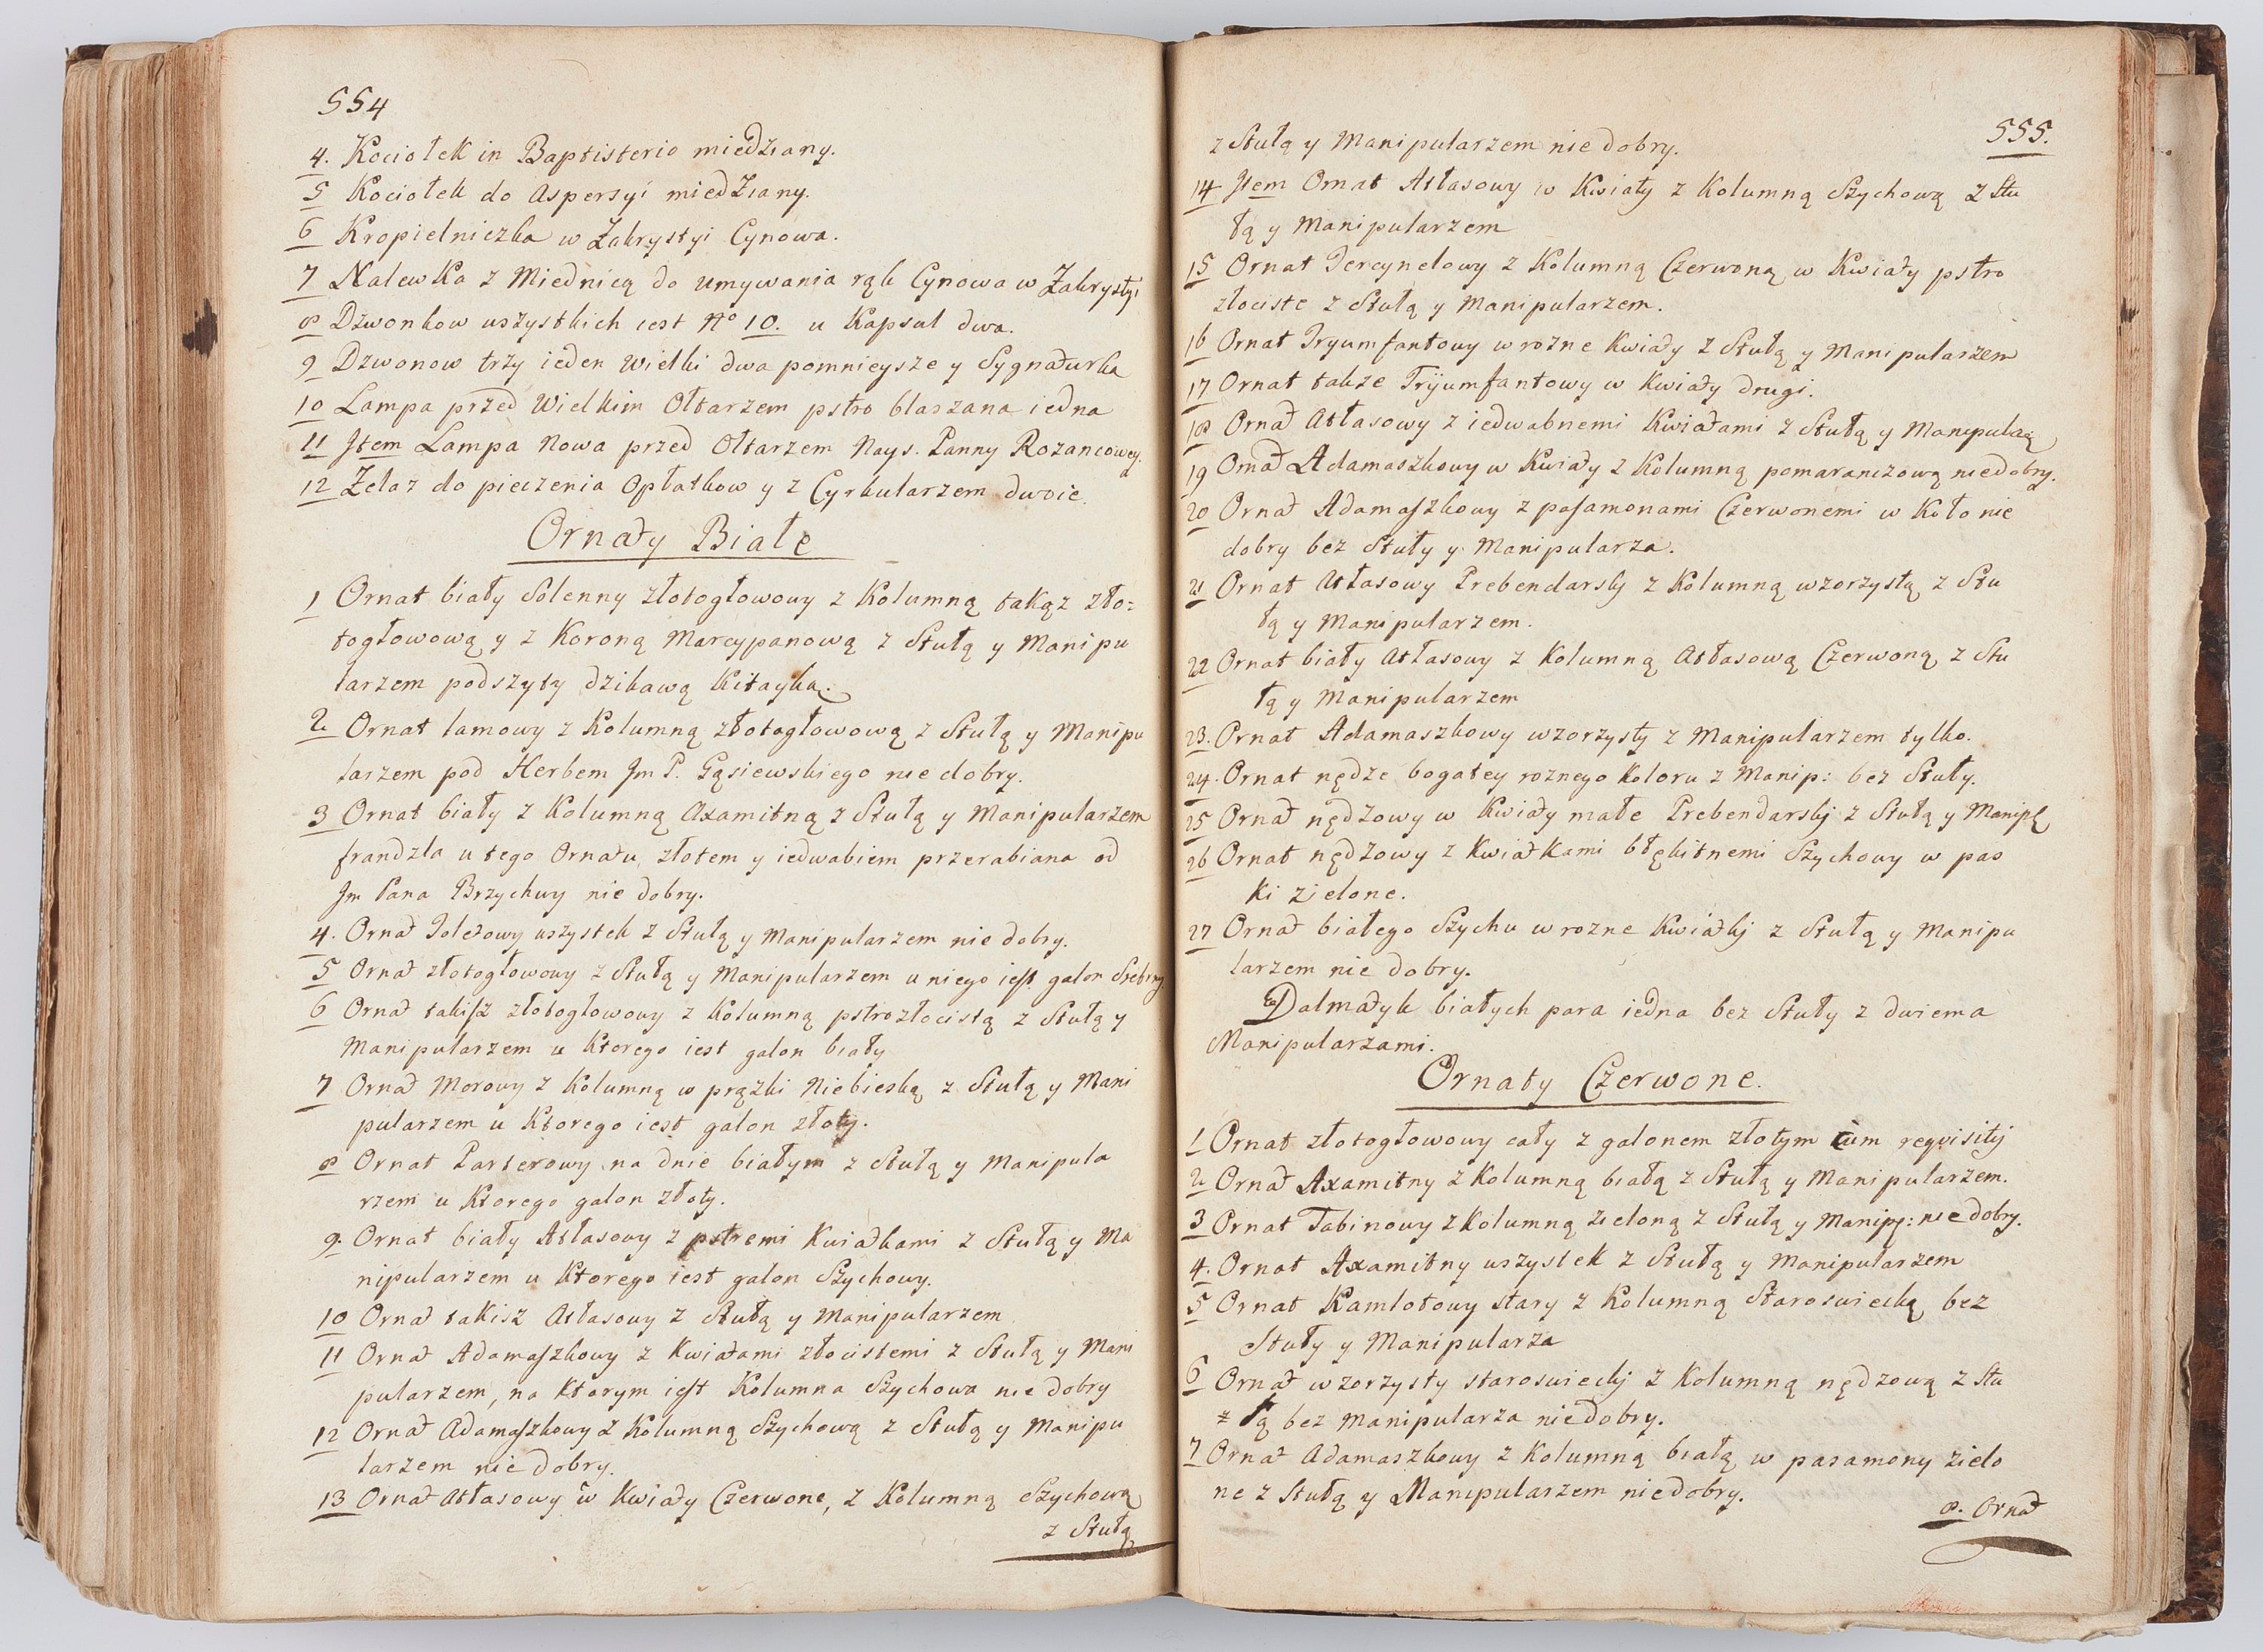 554
4. Kociołek in Baptisterio miedziany.
5 Kociołek do Aspersyi miedziany.
6 Kropielniczka w Zakrystyi Cynowa.
7 Nalewka z Miednicą do umywania rąk Cynowa w Zakrystyi
8 Dzwonkow wszystkich iest No 10. u Kapsul dwa.
9 Dzwonow trzy ieden Wielki dwa pomnieysze y Sygnaturka
10 Lampa przed Wielkim Ołtarzem pstro blaszana iedna
11 Jtem Lampa Nowa przed Ołtarzem Nays. Panny Rozancowey.
12 Zelaz do pieczenia Opłatkow y z Cyrkularzem dwoie.
Ornaty Białe
1 Ornat biały Solenny złotogłowowy z Kolumną takąz zło=
togłowową y z Koroną Marcypanową z Stułą y Manipu
larzem podszyty dzikawą Kitayką.
2 Ornat lamowy z Kolumną złotogłowową z Stułą y Manipu
larzem pod Herbem Jm P. Gąsiewskiego nie dobry.
3 Ornat biały z Kolumną Axamitną z Stułą y Manipularzem
frandzla u tego Ornatu złotem y iedwabiem przerabiana od
Jm Pana Brzychwy nie dobry.
4. Ornat Toletowy wszystek z Stułą y Manipularzem nie dobry.
5 Ornat złotogłowowy z Stułą y Manipularzem u niego iest galon Srebrny
6 Ornat takisz złotogłowowy z Kolumną pstrozłocistą z Stułą y
Manipularzem u Ktorego iest galon biały
7 Ornat Morowy z Kolumną w prązki Niebieską z Stułą y Mani
pularzem u Ktorego iest galon złoty.
8 Ornat Parterowy na dnie białym z Stułą y Manipula
rzem u Ktorego galon złoty.
9. Ornat biały Atłasowy z pstremi Kwiatkami z Stułą y Ma
nipularzem u Ktorego iest galon Szychowy.
10 Ornat takisz Atłasowy z Stułą y Manipularzem
11 Ornat Adamaszkowy z Kwiatami złocistemi z Stułą y Mani
pularzem, na Ktorym iest Kolumna Szychowa nie dobry
12 Ornat Adamaszkowy z Kolumną Szychową z Stułą y Manipu
larzem nie dobry.
13 Ornat Atłasowy w Kwiaty Czerwone, z Kolumną Szychową
z Stułą
555.
z Stułą y Manipularzem nie dobry.
14 Jtem Ornat Atłasowy w Kwiaty z Kolumną Szychową z Stu
łą y Manipularzem
15 Ornat Tercynelowy z Kolumną Czerwoną w Kwiaty pstro
złociste z Stułą y Manipularzem.
16 Ornat Tryumfantowy w rozne Kwiaty z Stułą y Manipularzem
17 Ornat takze Tryumfantowy w Kwiaty drugi.
18 Ornat Atłasowy z iedwabnemi Kwiatami z Stułą y
19 Ornat Adamaszkowy w Kwiaty z Kolumną pomaranczową niedobry.
20 Ornat Adamaszkowy z pasamonami Czerwonemi w Koło nie
dobry bez Stuły y Manipularza.
21 Ornat Atłasowy Prebendarskj z Kolumną wzorzystą z Stu
łą y Manipularzem.
22 Ornat biały Atłasowy z Kolumną Atłasową Czerwoną z Stu
łą y Manipularzem
23. Ornat Adamaszkowy wzorzysty z Manipularzem tylko.
24. Ornat nędze bogatey roznego Koloru z Manip: bez Stuły.
25 Ornat nędzowy w Kwiaty małe Prebendarskj z Stułą y
26 Ornat nędzowy z Kwiatkami błękitnemi Szychowy w pas
ki zielone.
27 Ornat białego Szychu w rozne Kwiatkj z Stułą y Manipu
larzem nie dobry.
Dalmatyk białych para iedna bez Stuły z dwiema
Manipularzami.
Ornaty Czerwone.
1 Ornat złotogłowowy cały z galonem złotym cum reqvisitij
2 Ornat Axamitny z Kolumną białą z Stułą y Manipularzem.
3 Ornat Tabinowy z Kolumną zieloną z Stułą y Manip: nie dobry.
4. Ornat Axamitny wszystek z Stułą y Manipularzem
5 Ornat Kamlotowy stary z Kolumną Staroswiecką bez
Stuły y Manipularza
6 Ornat wzorzysty staroswieckj z Kolumną nędzową z Stu
= łą bez Manipularza niedobry.
7 Ornat Adamaszkowy z Kolumną białą w pasamony zielo
ne z Stułą y Manipularzem niedobry.
8. Ornat